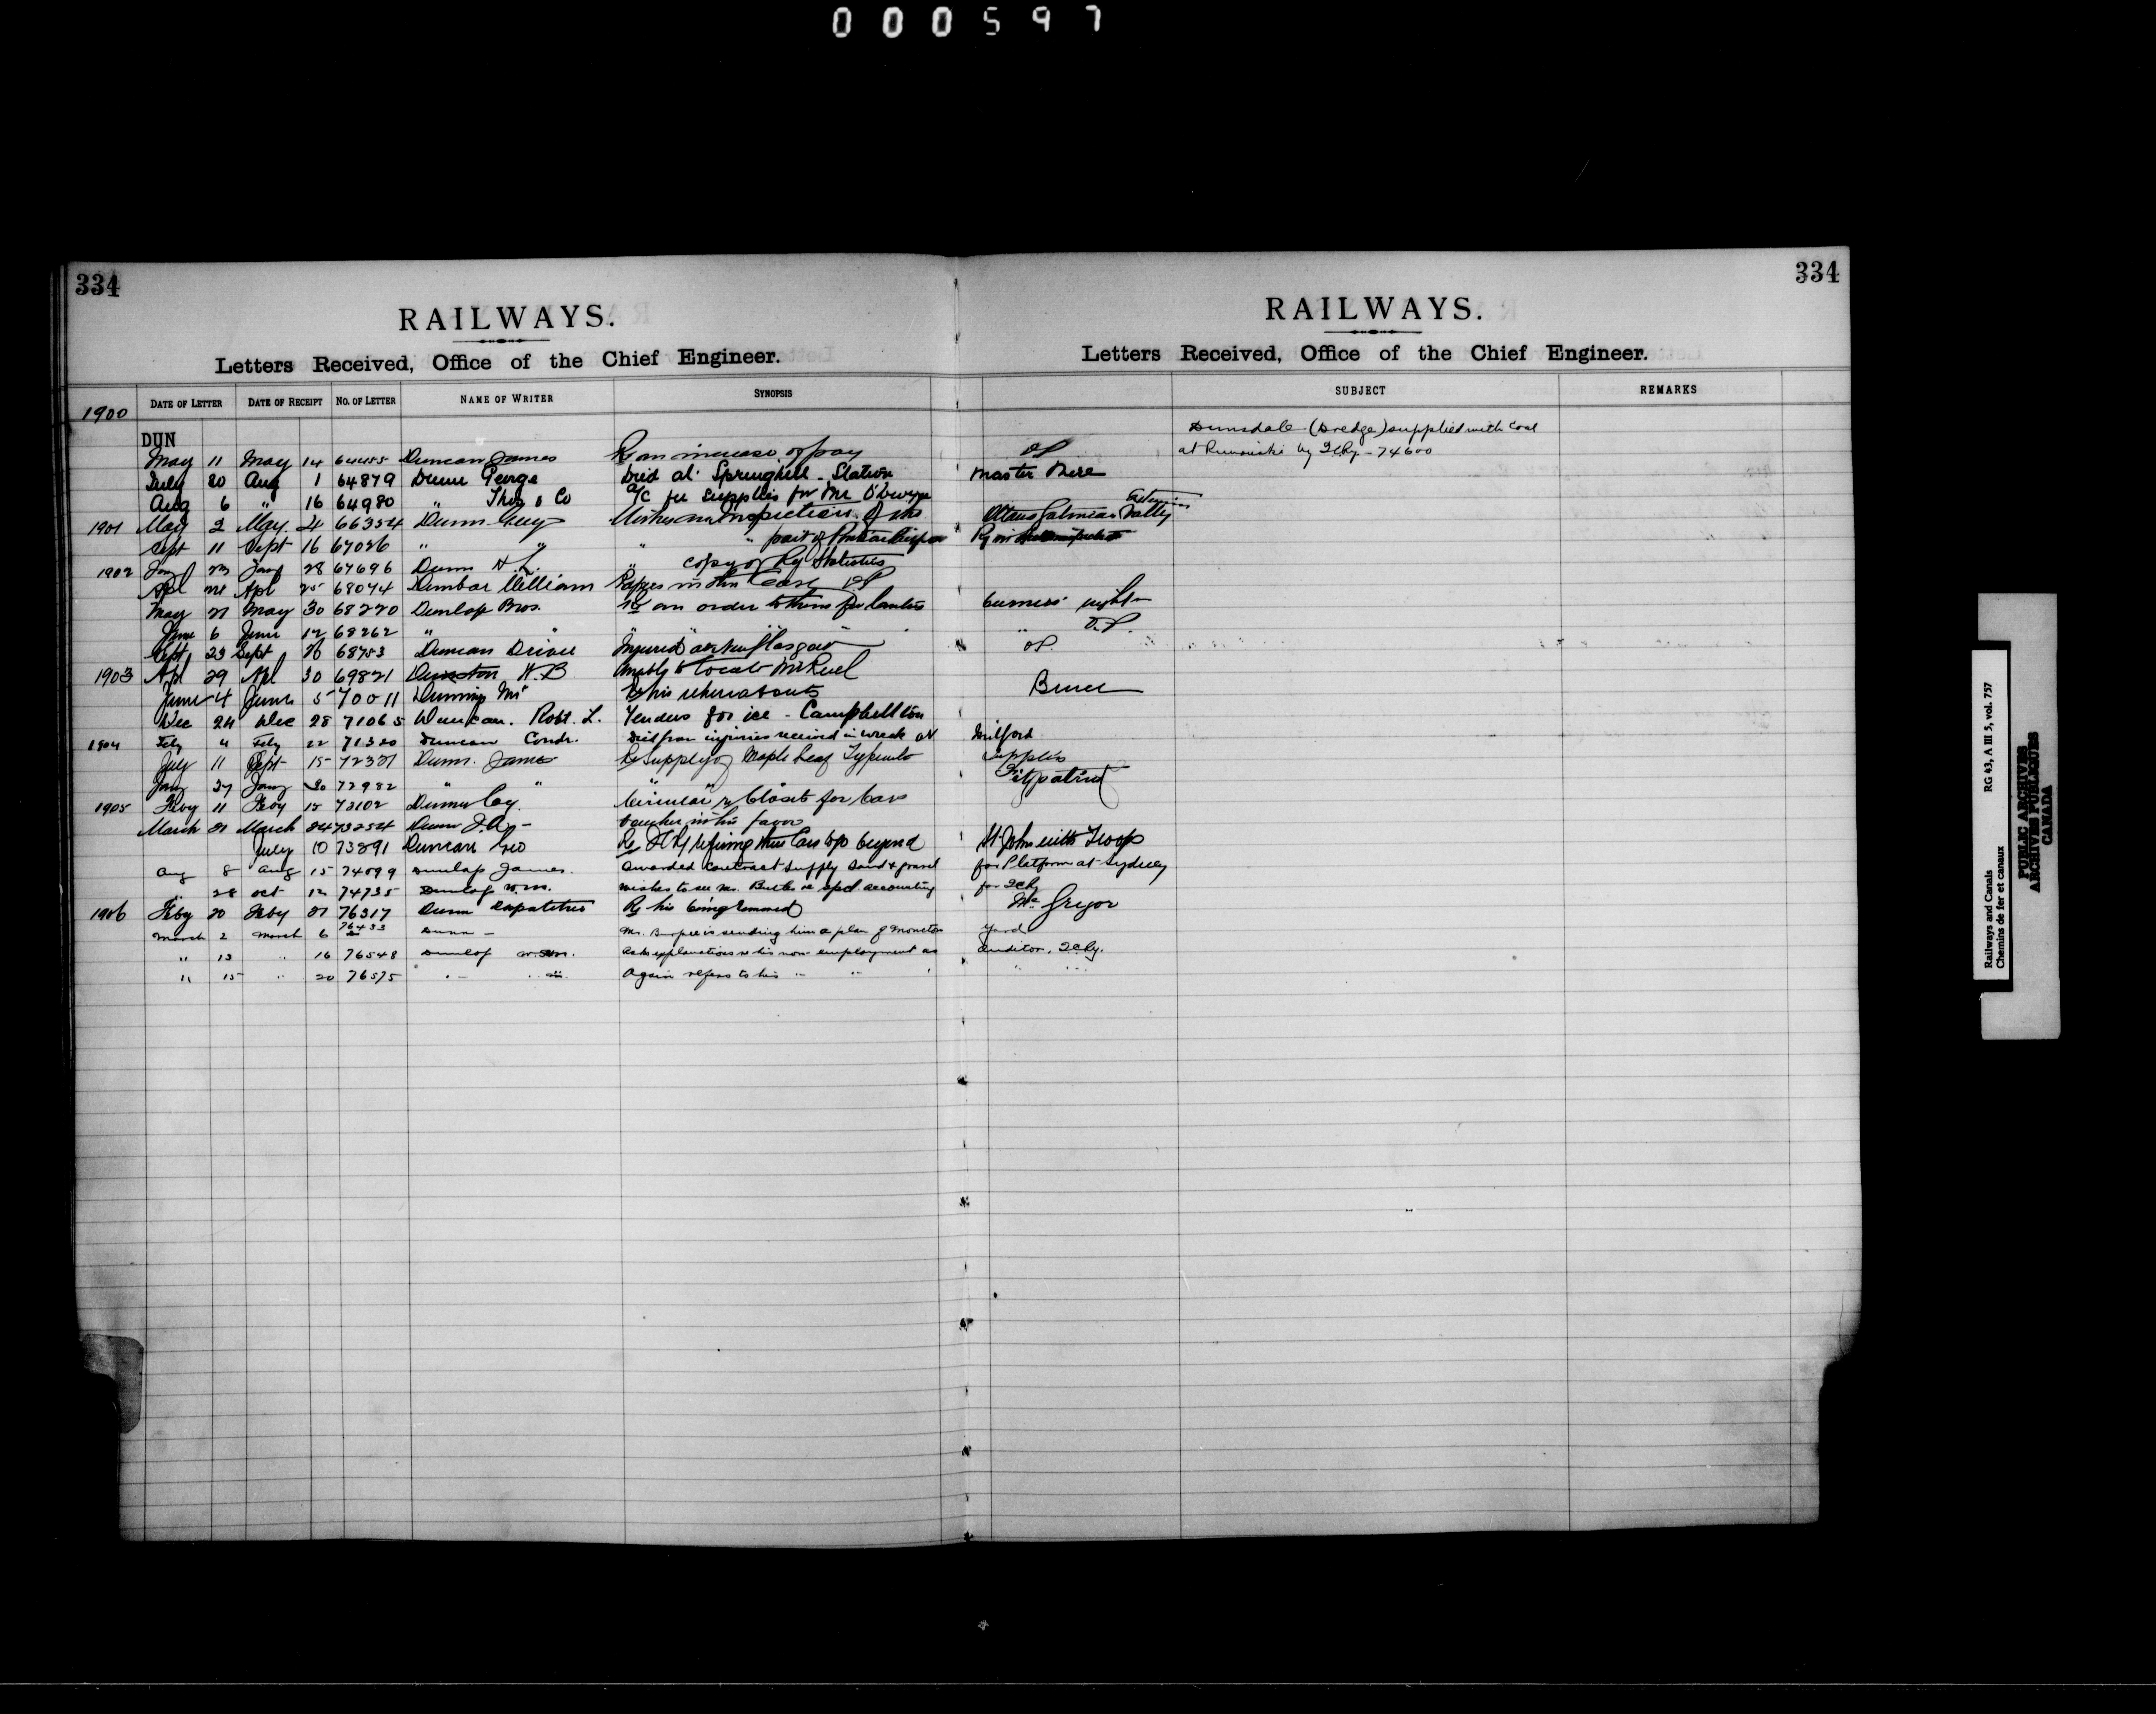 000597
334
RAILWAYS.
Letters Received, Office of the Chief Engineer.
334
RAILWAYS.
Letters Received, Office of the Chief Engineer.
DATE OF LETTER DATE OF RECEIPT NO. OF LETTER NAME OF WRITER SYNOPSIS SUBJECT REMARKS
1900
DUN
Dunsdale (Dredge) supplied with coal
at Rimouski by ICRy - 74600
May 11 May 14 Duncan James Re an increase of pay
July 20 Aug 1 64879 Dunn George Died at Springhill - Station master there
Aug 6 " 16 64980 " Thos & Co a/c for supplies for Mr
1901 May 2 May 4 66354 Dunn Guy Wishes an inspection of Valley
Sept 11 Sept 16 67026 " " " " part of
1902 Jany 28 67696 Dunn H. L. " copy of Ry Statistics
Apl Apl 25 68074 Dunbar William Papers in Case
May 27 May 30 68220 Dunlop Bros. Re an order to them for burners
June 6 June 12 68262 " "
Sept 23 Sept 26 68753 Duncan Driver Injured at New Glasgow
1903 Apl 29 Apl 30 69821 H. B Unable to locate
June 4 June 5 70011 Dunning Mr Re his whereabouts Bruce
Dec 24 Dec 28 71065 Duncan. Robt. L. Tenders for ice - Campbellton
1904 Feby 4 Feby 22 71320 Duncan Condr. Died from injuries received in wreck at Milford
July 11 Sept 15 72321 Dunn. James Re Supply of Maple Leaf supplies
Jany 27 Jany 30 72982 " " " " Fitzpatrick
1905 Feby 11 Feby 15 73102 Circular re Closets for Cars
March 21 March 24 73254 Dunn voucher in his favor
July 10 73891 Duncan Geo Re ICRy refusing cars to go beyond St. John with Troop
Aug 8 Aug 15 74099 Dunlap James. Awarded contract supply sand & gravel for Platform at Sydney
28 Oct 12 74735 Dunlop Wm. Wishes to see Mr. Butler re accounting for ICRy
1906 Feby 20 Feby 21 76317 Dunn Re his being removed McGregor
March 2 March 6 76433 Dunn - Mr. Burpee is sending him a plan of Moncton Yard
" 13 " 16 76548 Dunlop Wm. Asks explanations re his non employment as Auditor, ICRy.
" 15 " 20 76575 " " Again refers to his " " " "
Railways and Canals RG 43, A III 5, vol. 757
Chemins de fer et canaux
PUBLIC ARCHIVES
ARCHIVES PUBLIQUES
CANADA